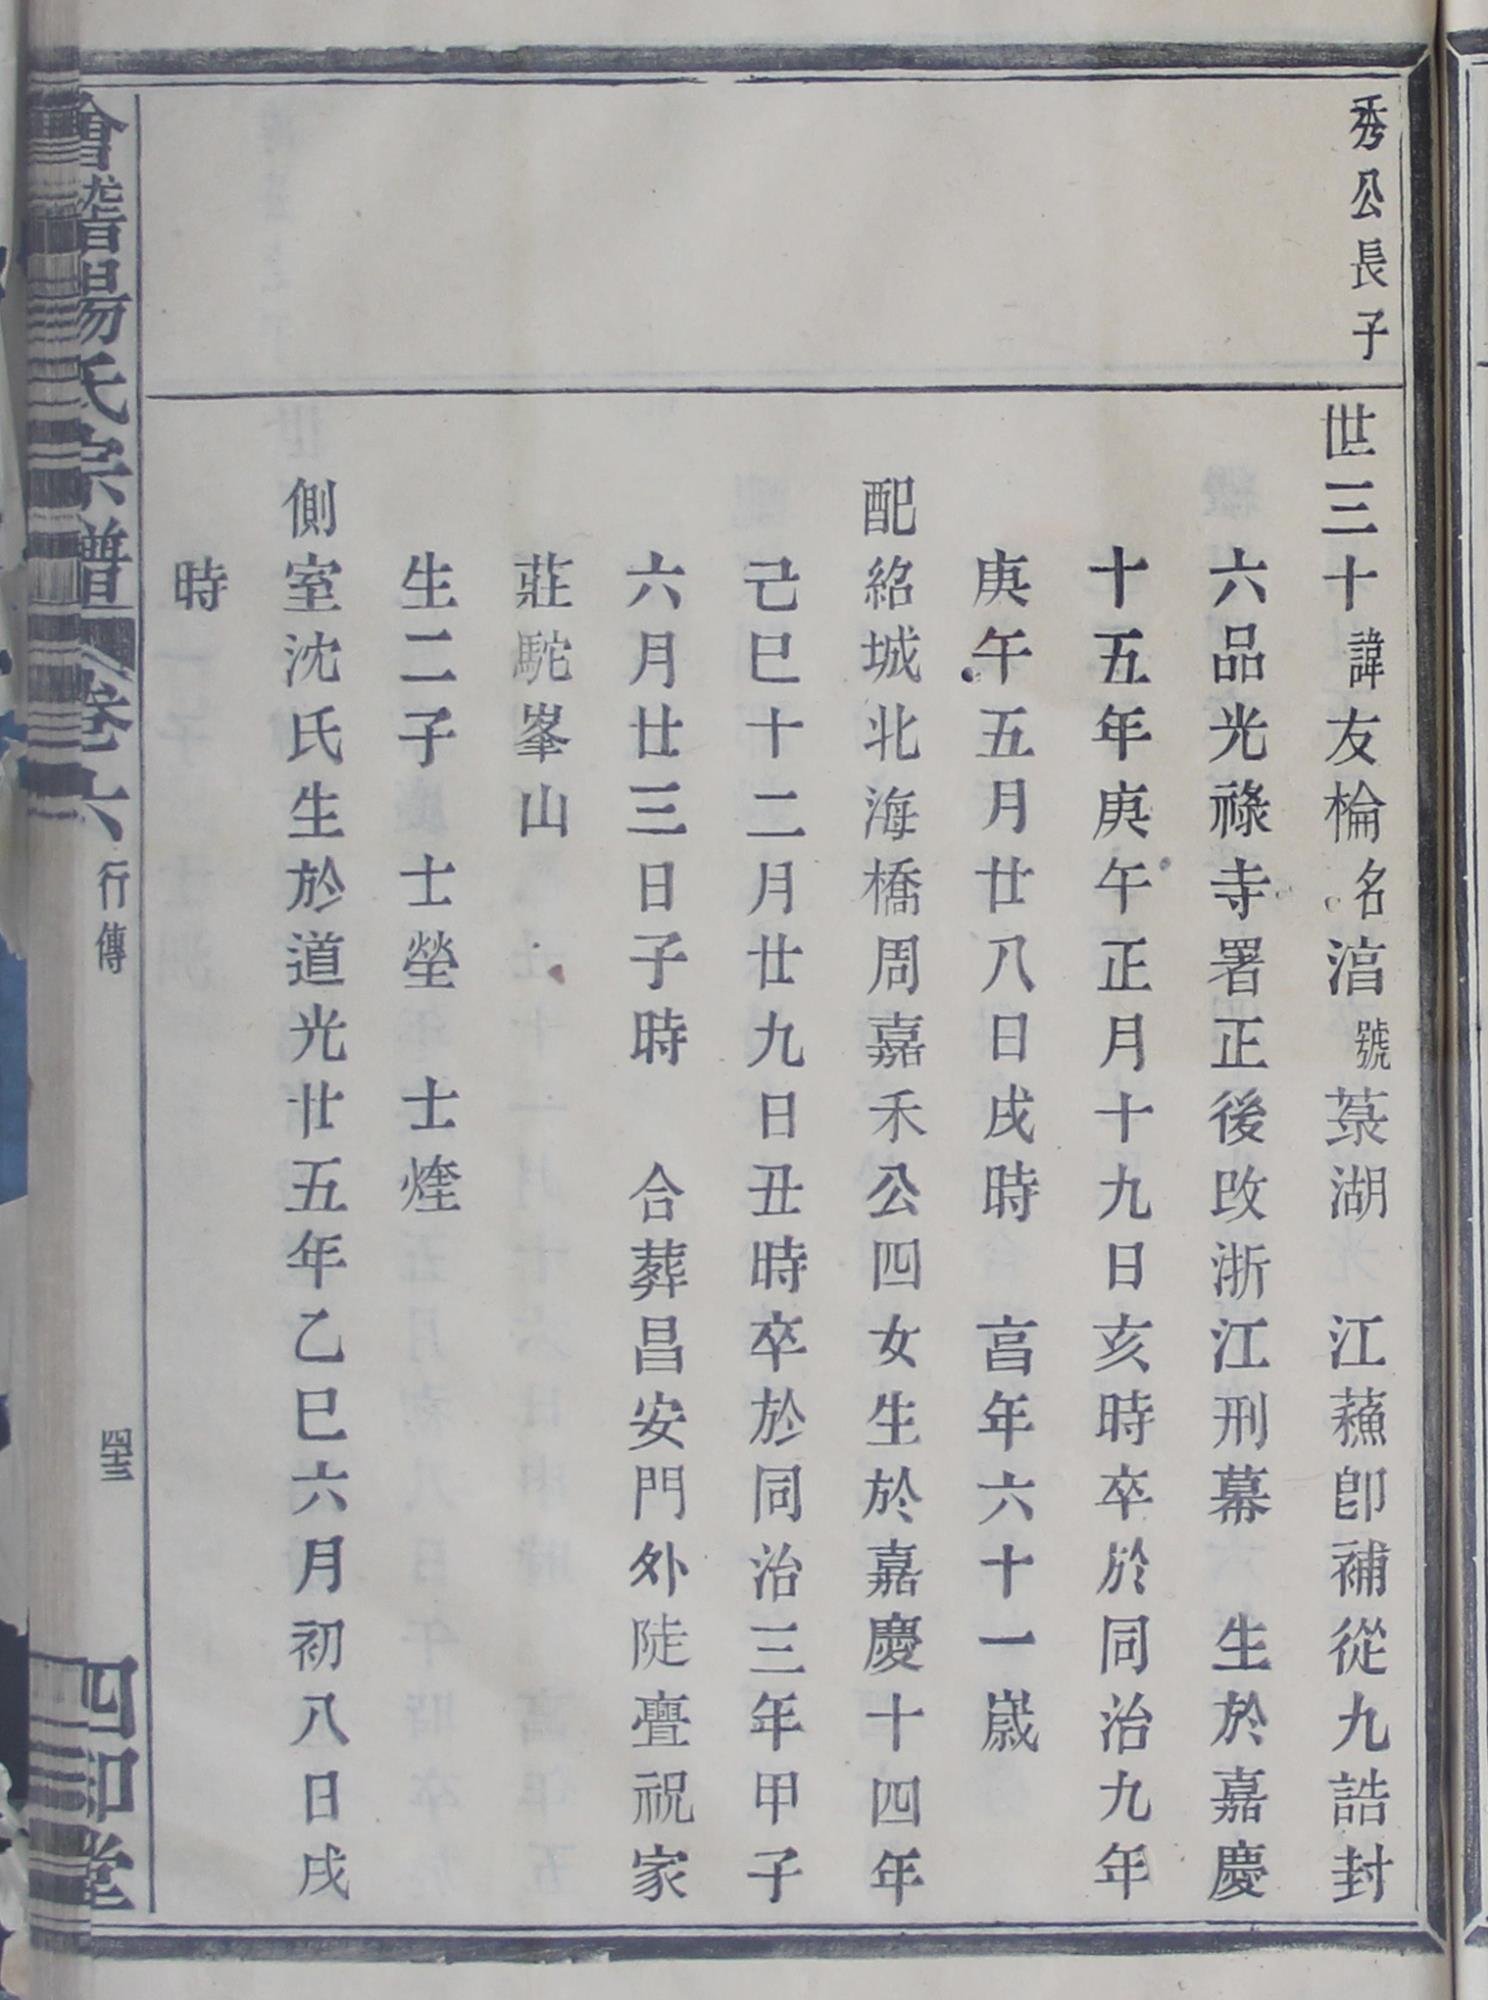 秀公長子
世三十諱友棆名湻號菉湖　江蘓卽補從九誥封
六品光祿寺署正後改浙江刑幕　生於嘉慶
十五年庚午正月十九日亥時卒於同治九年
庚午五月廿八日戌時　亯年六十一嵗
配紹城北海橋周嘉禾公四女生於嘉慶十四年
己巳十二月廿九日丑時卒於同治三年甲子
六月廿三日子時　合葬昌安門外陡亹祝家
莊駝峯山
生二子　士塋　士煃
側室沈氏生於道光廿五年乙巳六月初八日戌
時
會稽氏宗譜　卷六　行傳　四十三　四知堂